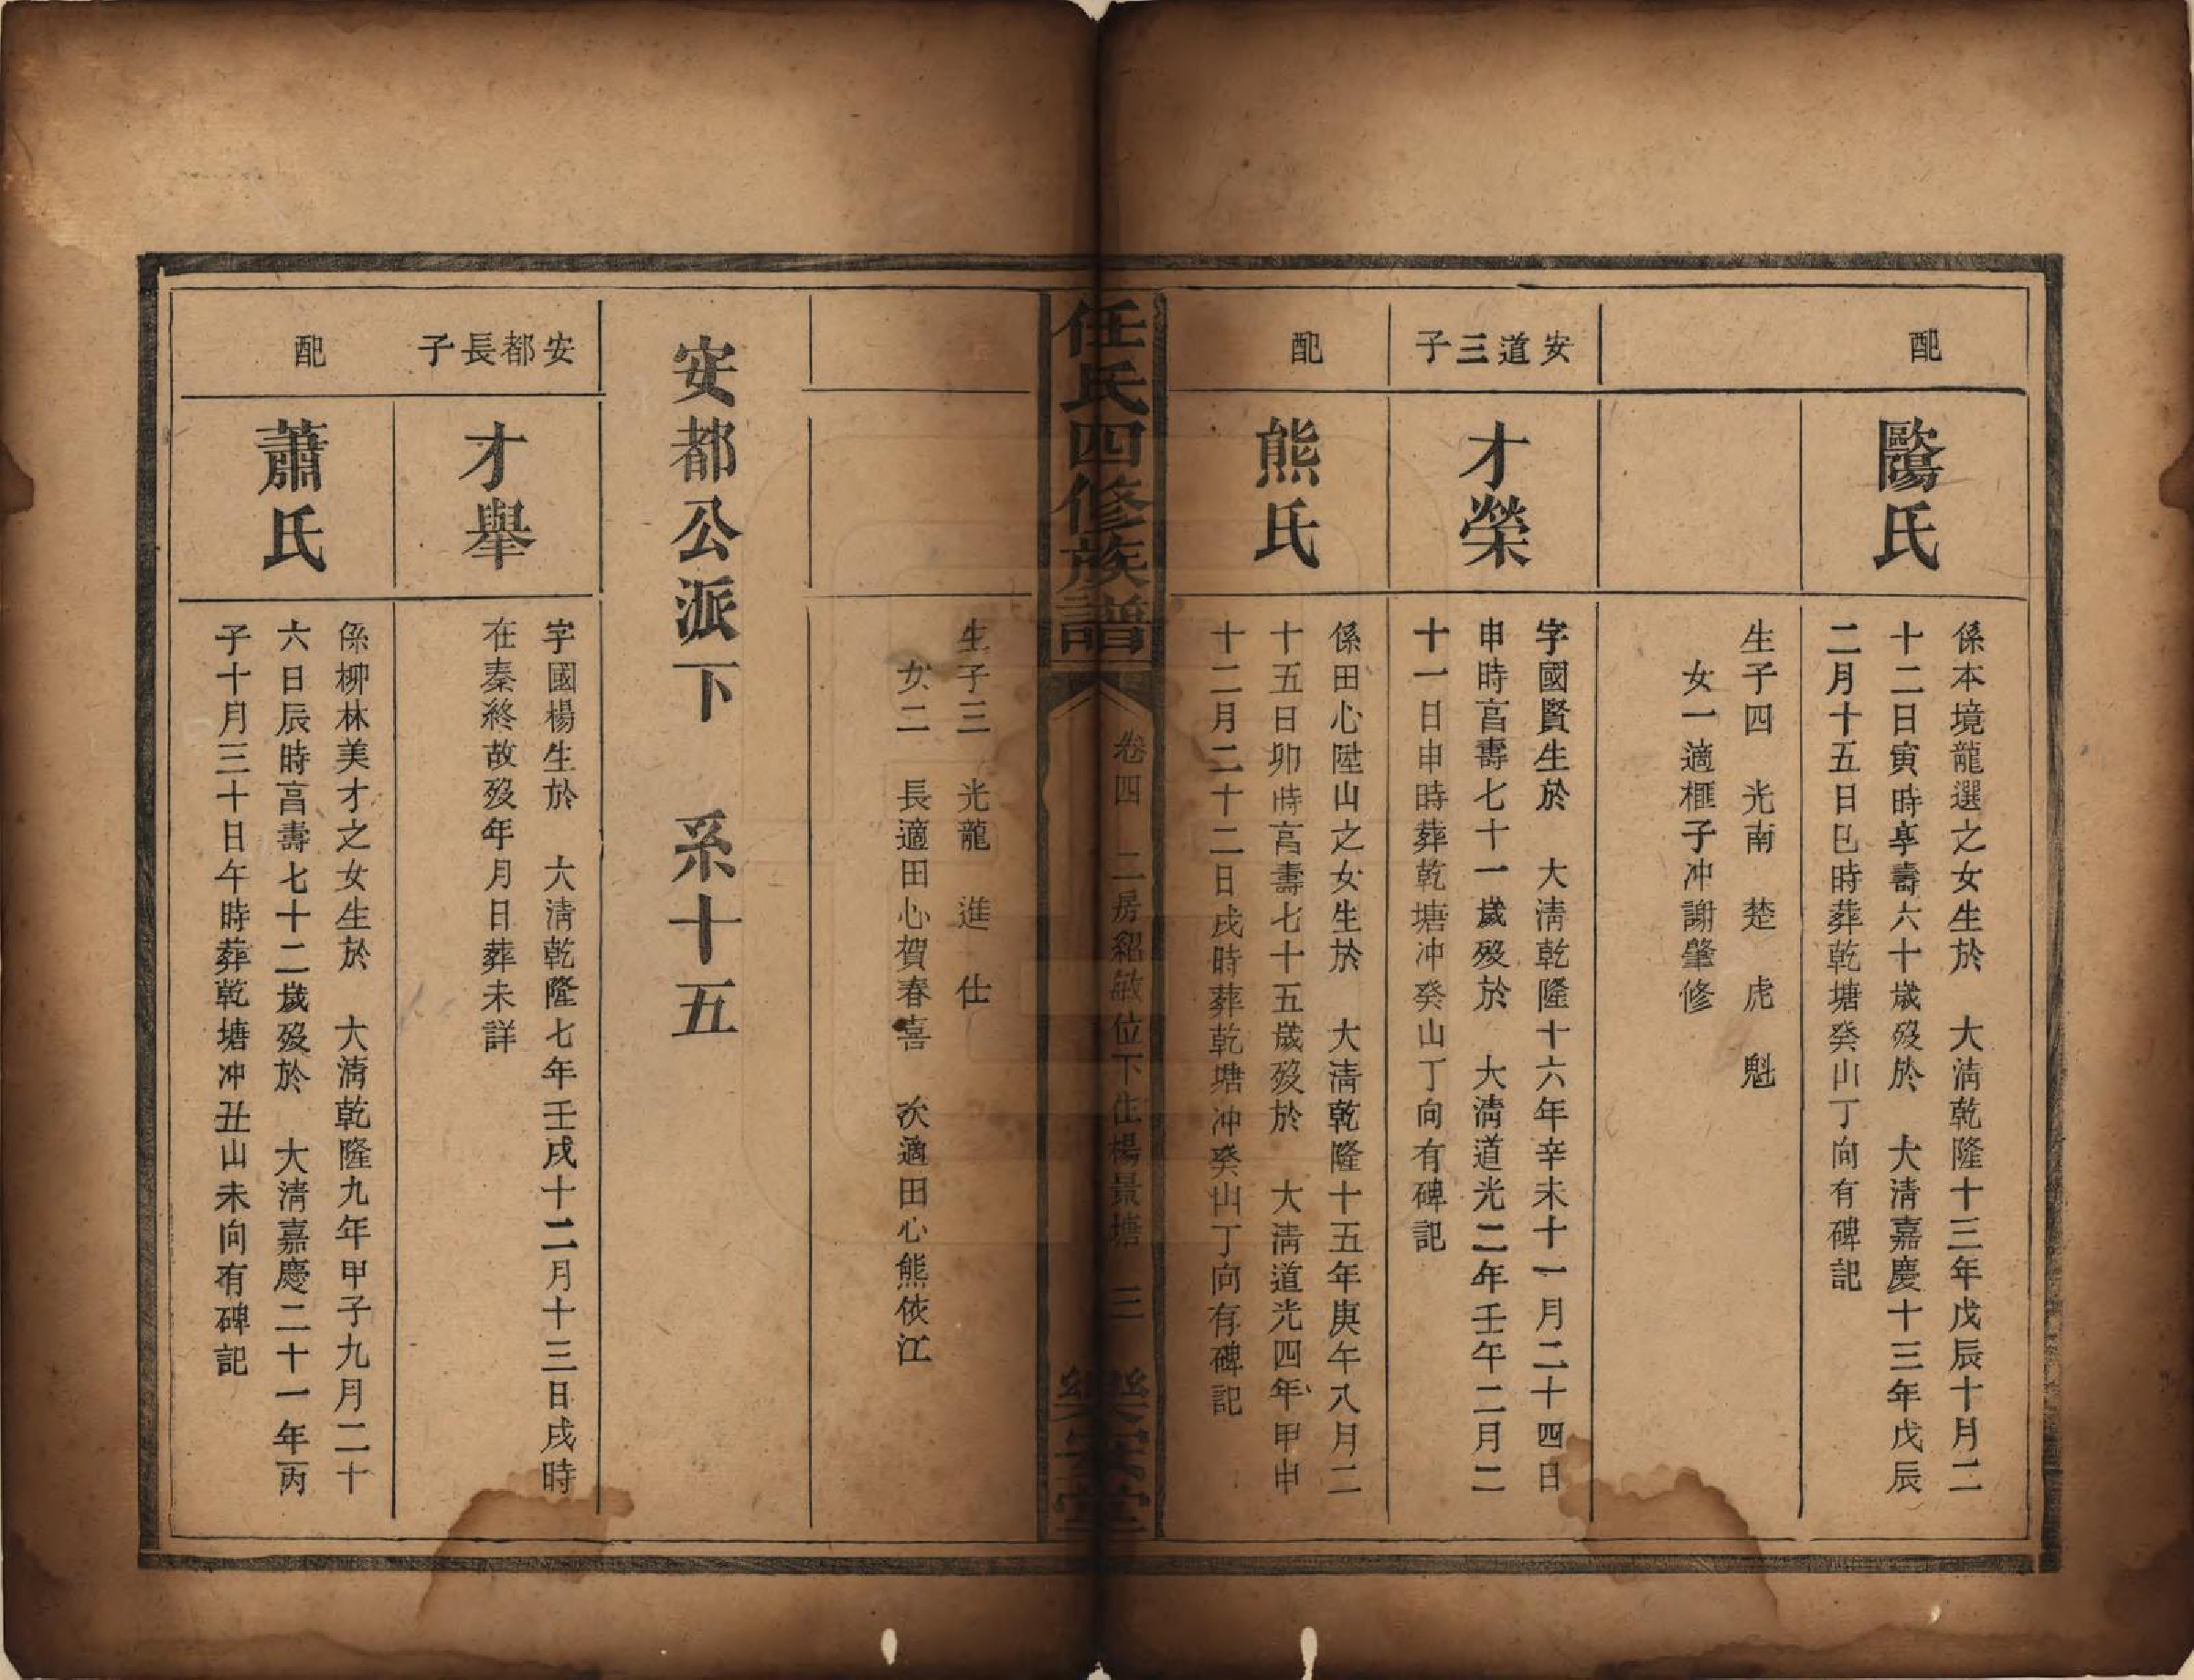 配
歐陽氏
係本境龍選之女生於　大清乾隆十三年戊辰十月二
十二日寅時享壽六十歲歿於　大清嘉慶十三年戊辰
二月十五日巳時葬乾塘癸山丁向有碑記
生子四　光南　楚　虎　魁
女一適榧子冲謝肇修
安道三子
才榮
字國賢生於　大清乾隆十六年辛未十一月二十四日
申時亯壽七十一歲歿於　大清道光二年壬午二月二
十一日申時葬乾塘冲癸山丁向有碑記
配
熊氏
係田心陞山之女生於　大清乾隆十五年庚午八月二
十五日卯時亯壽七十五歲歿於　大清道光四年甲申
十二月二十二日戌時葬乾塘冲癸山丁向有碑記
任氏四修族譜
卷四　二房紹敏位下住楊景塘　三
樂安堂
生子三　光龍　進　仕
女二　長適田心賀春喜　次適田心熊依江
安都公派下　系十五
安都長子
才舉
字國楊生於　大清乾隆七年壬戌十二月十三日戌時
在秦終故歿年月日葬未詳
配
蕭氏
係柳林美才之女生於　大清乾隆九年甲子九月二十
六日辰時亯壽七十二歲歿於　大清嘉慶二十一年丙
子十月三十日午時葬乾塘冲丑山未向有碑記